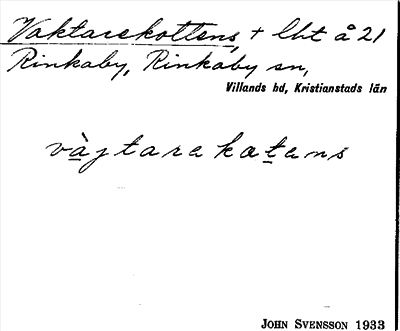 Vaktarekottens, + lht å 21
Rinkaby, Rinkaby sn,
Villands hd, Kristianstads län
vàjtarekotens
JOHN SVENSSON 1933